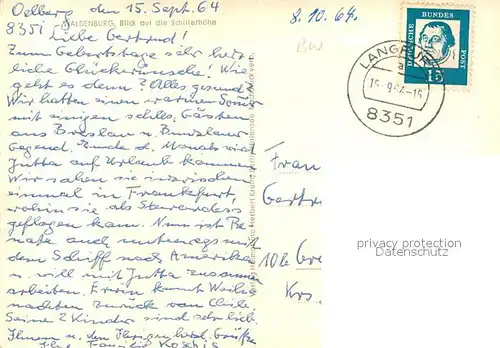 Oelberg den 15. Sept. 64
8351
WALDENBURG, Blick auf die Schillerhöhe
Liebe Gertrud!
Zum Geburtstage sehr herz-
liche Glückwünsche! Wie
geht es denn? Alles gesund?
Wir hatten einen warmen Sommer
mit einigen schles. Gästen
aus Breslau u. Bunzlauer
Gegend. Ende d. Monats wird
Jutta auf Urlaub kommen
Wir sahen sie inzwischen
einmal in Frankfurt,
wohin sie als Stewardess
geflogen kam. Nun ist Re-
nate auch unterwegs mit
dem Schiff nach Amerika
u. will mit Jutta zusammen
arbeiten. kommt Weih-
nachten zurück von Chile.
Seine 2 Kinder sind sehr lieb.
Ihnen u. den Ihrigen herzl. Grüße
Ihre Familie
8.10.64.
BW
DEUTSCHE BUNDESPOST
15
8351
Frau
Gertr
Krs.
privacy protection
Datenschutz